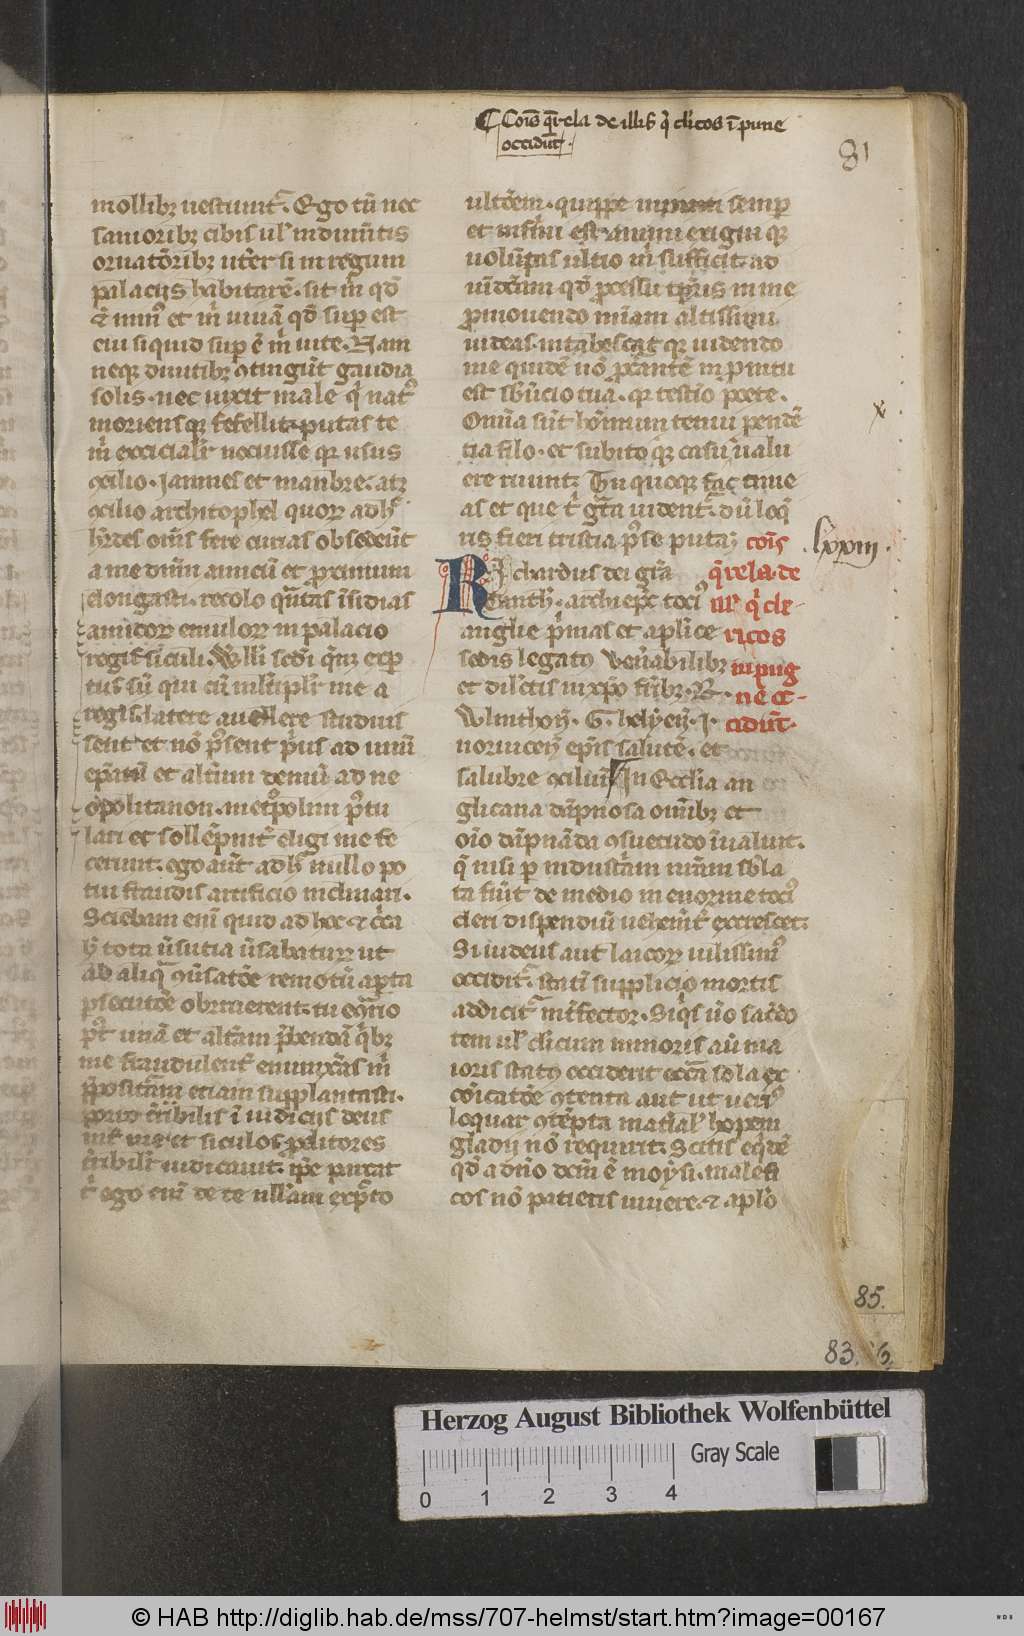 Cois q̄rela de illis q̇ clicos īpune
occidūt.
81
mollibꝫ uestiunt᷑. Ego tn̄ nec
sanioribꝫ cibis ul' indumētis
ornatōribꝫ uter̄ si in regum
palacijs habitarē. sit m̄ qd̄
& min᷒ et m̄ uiuā qd̄ suꝑ est
eui siquid suꝑ ē m̄ uite. Nam
neqꝫ diuitibꝫ ꝯtingūt gaudia
solis. nec uixit male q̇ nat᷒
moriensqꝫ fefellit. putas te
m̄ exicialit̄ nocuisse qꝫ usus
ꝯsilio. Jamnes et mambre. atqꝫ
ꝯsilio architophel quoꝝ adh᷒
hr̄des om̄s fere curias obsederūt
a me dn̄m amicū et proximum
elongasti. recolo qn̄tas īsidias
amicoꝝ emuloꝝ in palacio
regis siculi. Willi sedi q̇ꝫ exp
tus sū qui cū mltiplr̄ me a
regis latere auellere studuis
sent et nō p̄sent p̄us ad unū
ep̄atū et altum demū ad ne
opolitanon. metropolim p̄tu
lati et sollēpnit᷑ eligi me fe
cerunt. ego aūt adh᷒ nullo po
tui fraudis artificio inclinari.
Sciebam eni quid ad hoc & cᷓca
h᷒ tota ūsutia ūsabatur ut
ab aliqᷓ ꝯūsatōe remotū aꝑta
ꝑsecutōe obruerent. tu eqᷓnio
p᷒t unā et altam p̄bendā q̇bꝫ
me fraudulent᷑ emunxᷓas m̄
p̄positᷓam etiam supplantasti.
porro t̄ribilis ī iudicijs deus
int᷑ me et siculos proditores
t̄ribilit̄ iudicauit. ipse putat
t᷑ ego eni de te ullᷓam exp̄to
ultōem. quippe semp
et infirmi est animi exiguiqꝫ
uolūptas ultio m̄ sufficit. ad
uidēdam qd̄ processu tꝑris in me
promouendo miᷓam altissimi
uideas. intabescatqꝫ uidendo
me quidē nō procᷓantē inpunitu
est sb̄ucio tua. qꝫ testio poete.
Omīa sūt hoīmum tenui pendē
tia filo. et subito q̇ꝫ casu ualu
ere ruunt. Tu quoqꝫ fac time
as et que t᷑ gᷓta uident᷑. dū loq̄
ris fieri tristia p̄se puta.
cōis
q̄rela. de
ill᷒ q̇ cle-
ricos
inpug
ne oc-
cidūt.
lxxiii.
x
Richardus dei gr̄a
Cantu᷒. archiep̄c toci᷒
anglie p̄mas et aplice
sedis legatꝰ ven̄abilibꝫ
et dilc̄tis in xp̄o frībꝫ. R.
Wlinthoñ. G. helyeñ. J.
norwiceñ ep̄is salutē. et
salubre ꝯciliū. In Ecclia an
glicana dāpnosa omībꝫ et
oīo dāpnāda ꝯsuetudo īualuit.
q̄ nisi ꝑ industᷓam nrᷓam sb̄la
ta fūit de medio in enorme toci᷒
cleri dispendiū uehemēt᷑ excrescet.
Si iudeus aut laicoꝝ uilissim᷒
occidit᷑. statī supplicio mortis
addicit᷑ intfector. Siq̇s ūo sacdo
tem ul' clicum minoris aū ma
ioris status occiderit ecctᷓa sola ex
cōicatōe ꝯtenta aut ut ueri᷒
loquar ꝯtēpta matial' hopem
gladij nō requirit. Scitis eqᷓdē
qd̄ a dn̄o dc̄m ē moysi. malefi
cos nō patieris uiuere. & aplo
85.
83.
Herzog August Bibliothek Wolfenbüttel
Gray Scale
0 1 2 3 4
© HAB http://diglib.hab.de/mss/707-helmst/start.htm?image=00167